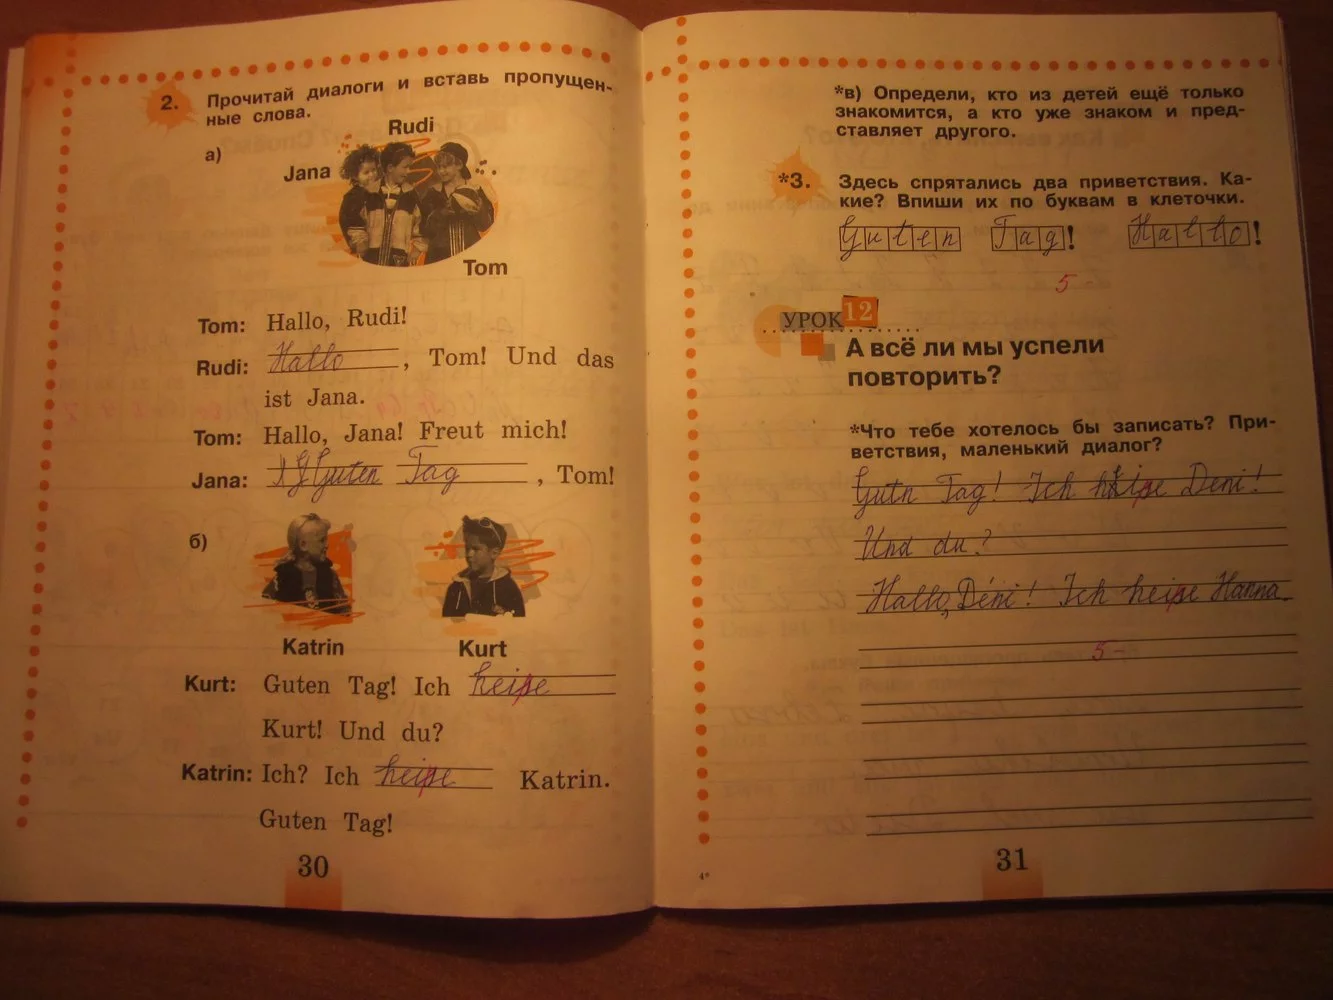 2. Прочитай диалоги и вставь пропущен-
ные слова.
а)
Rudi
Jana
Tom
Tom: Hallo, Rudi!
Rudi: Hallo, Tom! Und das
ist Jana.
Tom: Hallo, Jana! Freut mich!
Jana: Guten Tag, Tom!
б)
Katrin Kurt
Kurt: Guten Tag! Ich heiße
Kurt! Und du?
Katrin: Ich? Ich heiße Katrin.
Guten Tag!
30
*в) Определи, кто из детей ещё только
знакомится, а кто уже знаком и пред-
ставляет другого.
*3. Здесь спрятались два приветствия. Ка-
кие? Впиши их по буквам в клеточки.
Guten Tag! Hallo!
5-
УРОК 12
А всё ли мы успели
повторить?
*Что тебе хотелось бы записать? При-
ветствия, маленький диалог?
Gutn Tag! Ich heiße Deni!
Und du?
Hallo, Deni! Ich heiße Hanna.
5-
4*
31